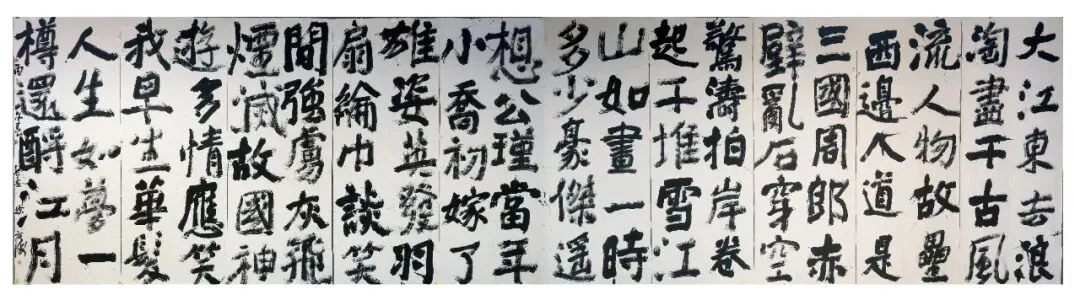 大江東去浪
淘盡千古風
流人物故壘
西邊人道是
三國周郎赤
壁亂石穿空
驚濤拍岸卷
起千堆雪江
山如畫一時
多少豪傑遥
想公瑾當年
小喬初嫁了
雄姿英發羽
扇綸巾談笑
間強虜灰飛
煙滅故國神
遊多情應笑
我早生華髮
人生如夢一
樽還酹江月